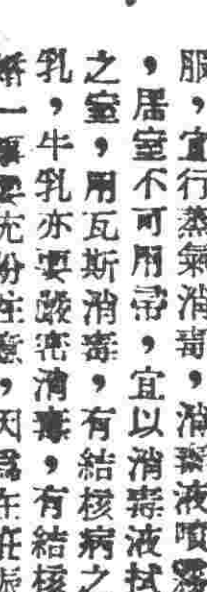 服，宜行蒸氣消毒，消毒液噴霧
，居室不可用帚，宜以消毒液拭
之室，用瓦斯消毒，有結核病之
乳，牛乳亦要嚴密消毒，有結核
一要充份注意，因為在